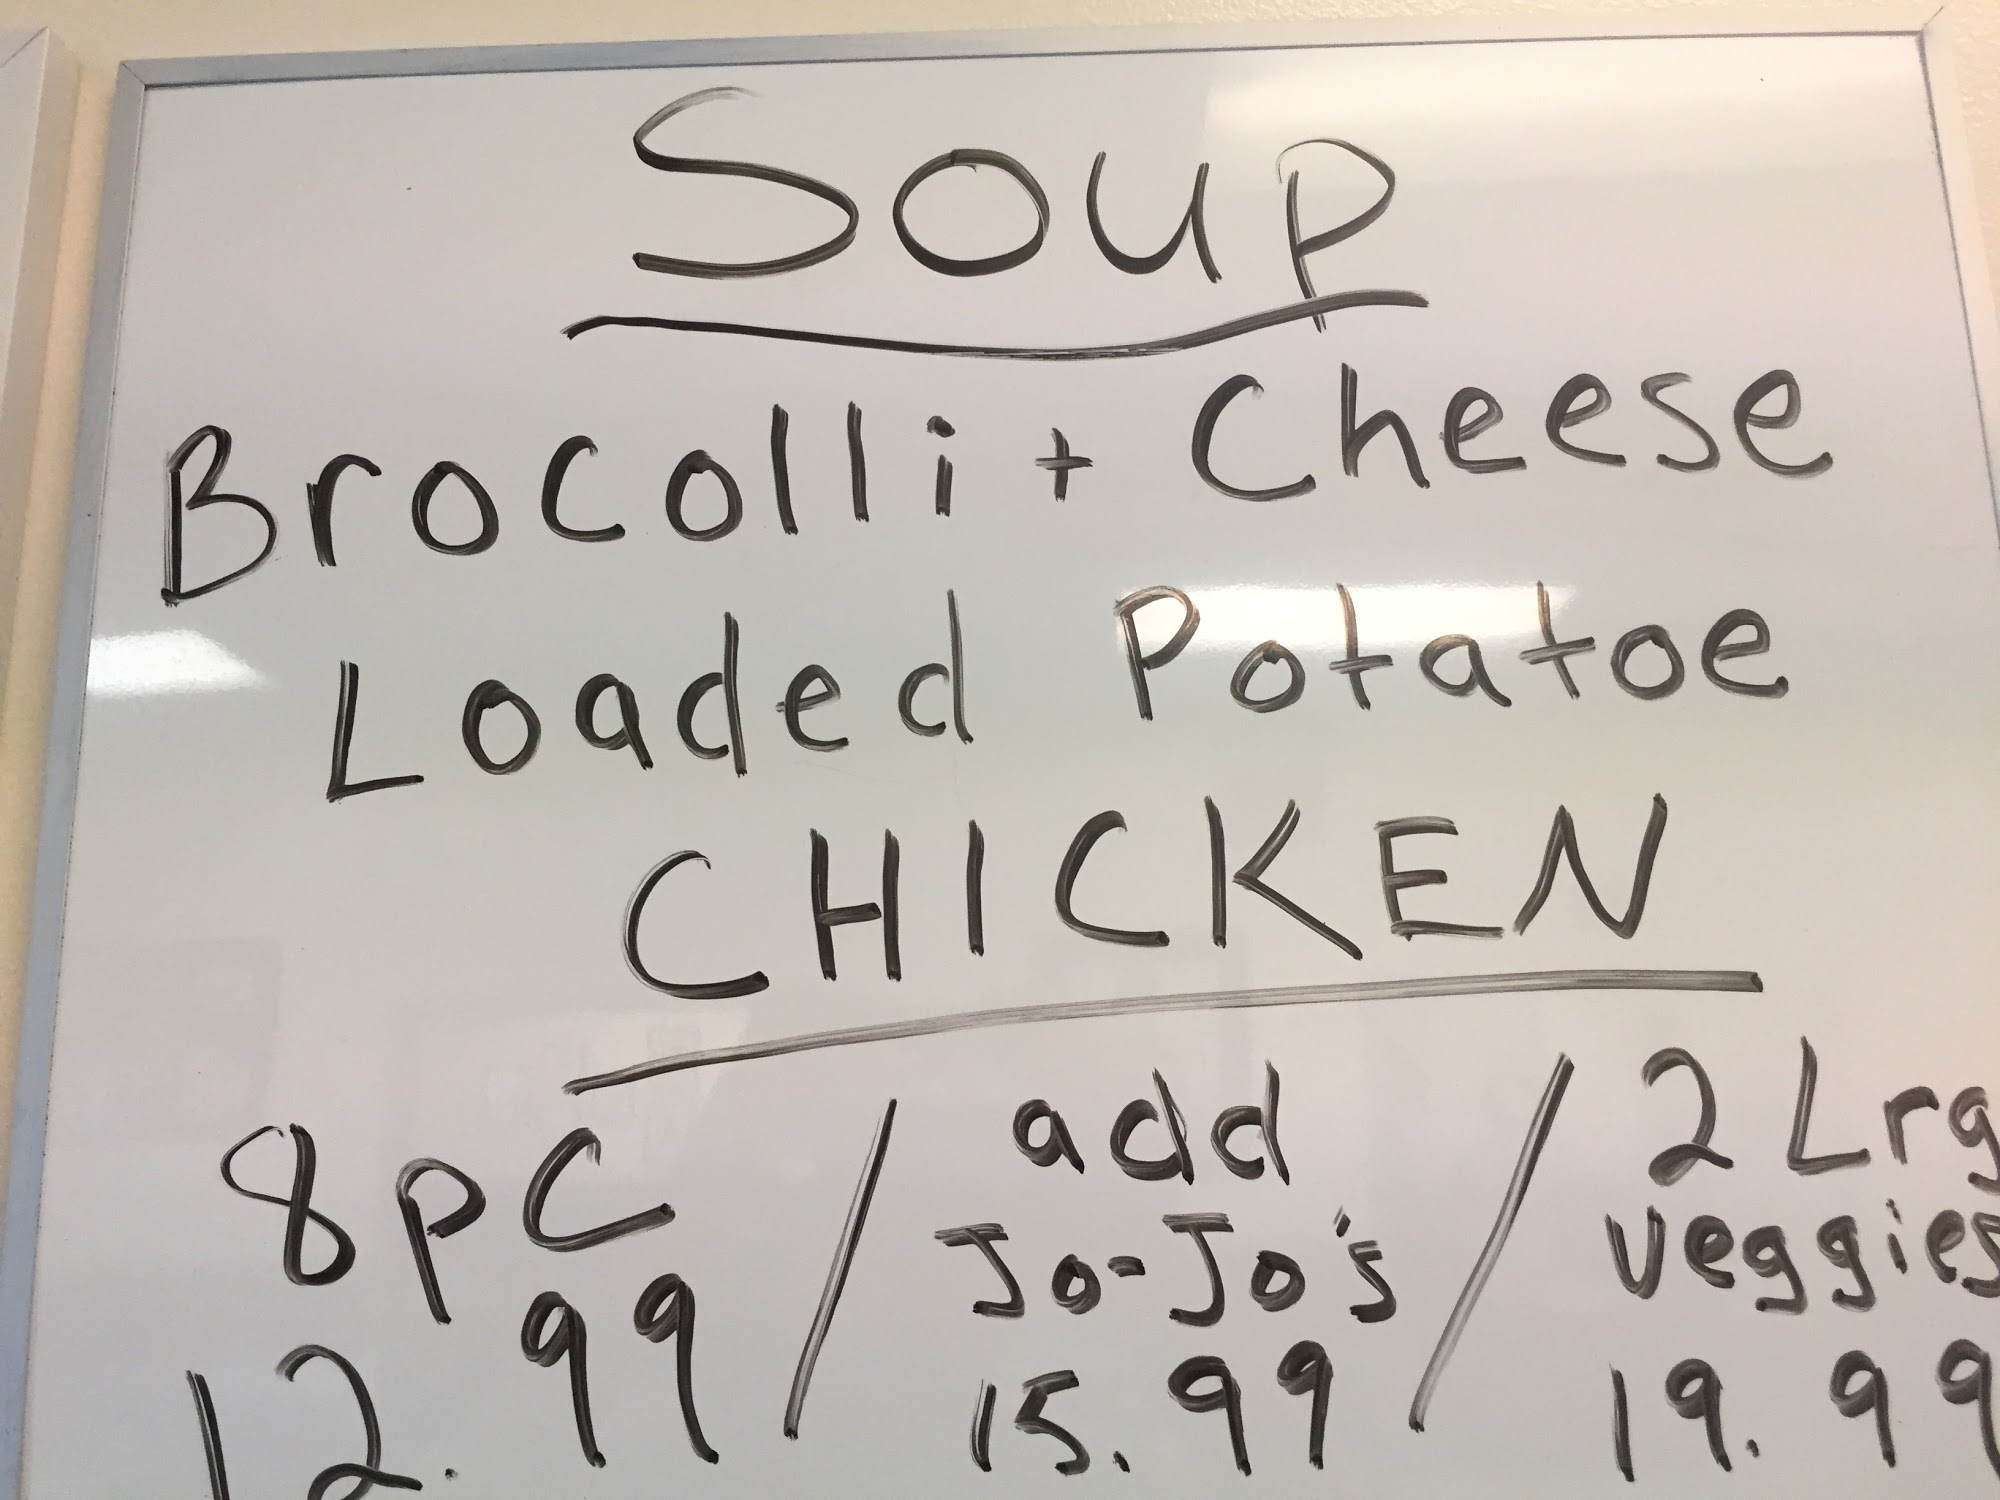 Soup
Brocolli + Cheese
Loaded Potatoe
CHICKEN
8pc / add / 2 Lrg
Jo-Jo's veggies
12.99 15.99 19.99